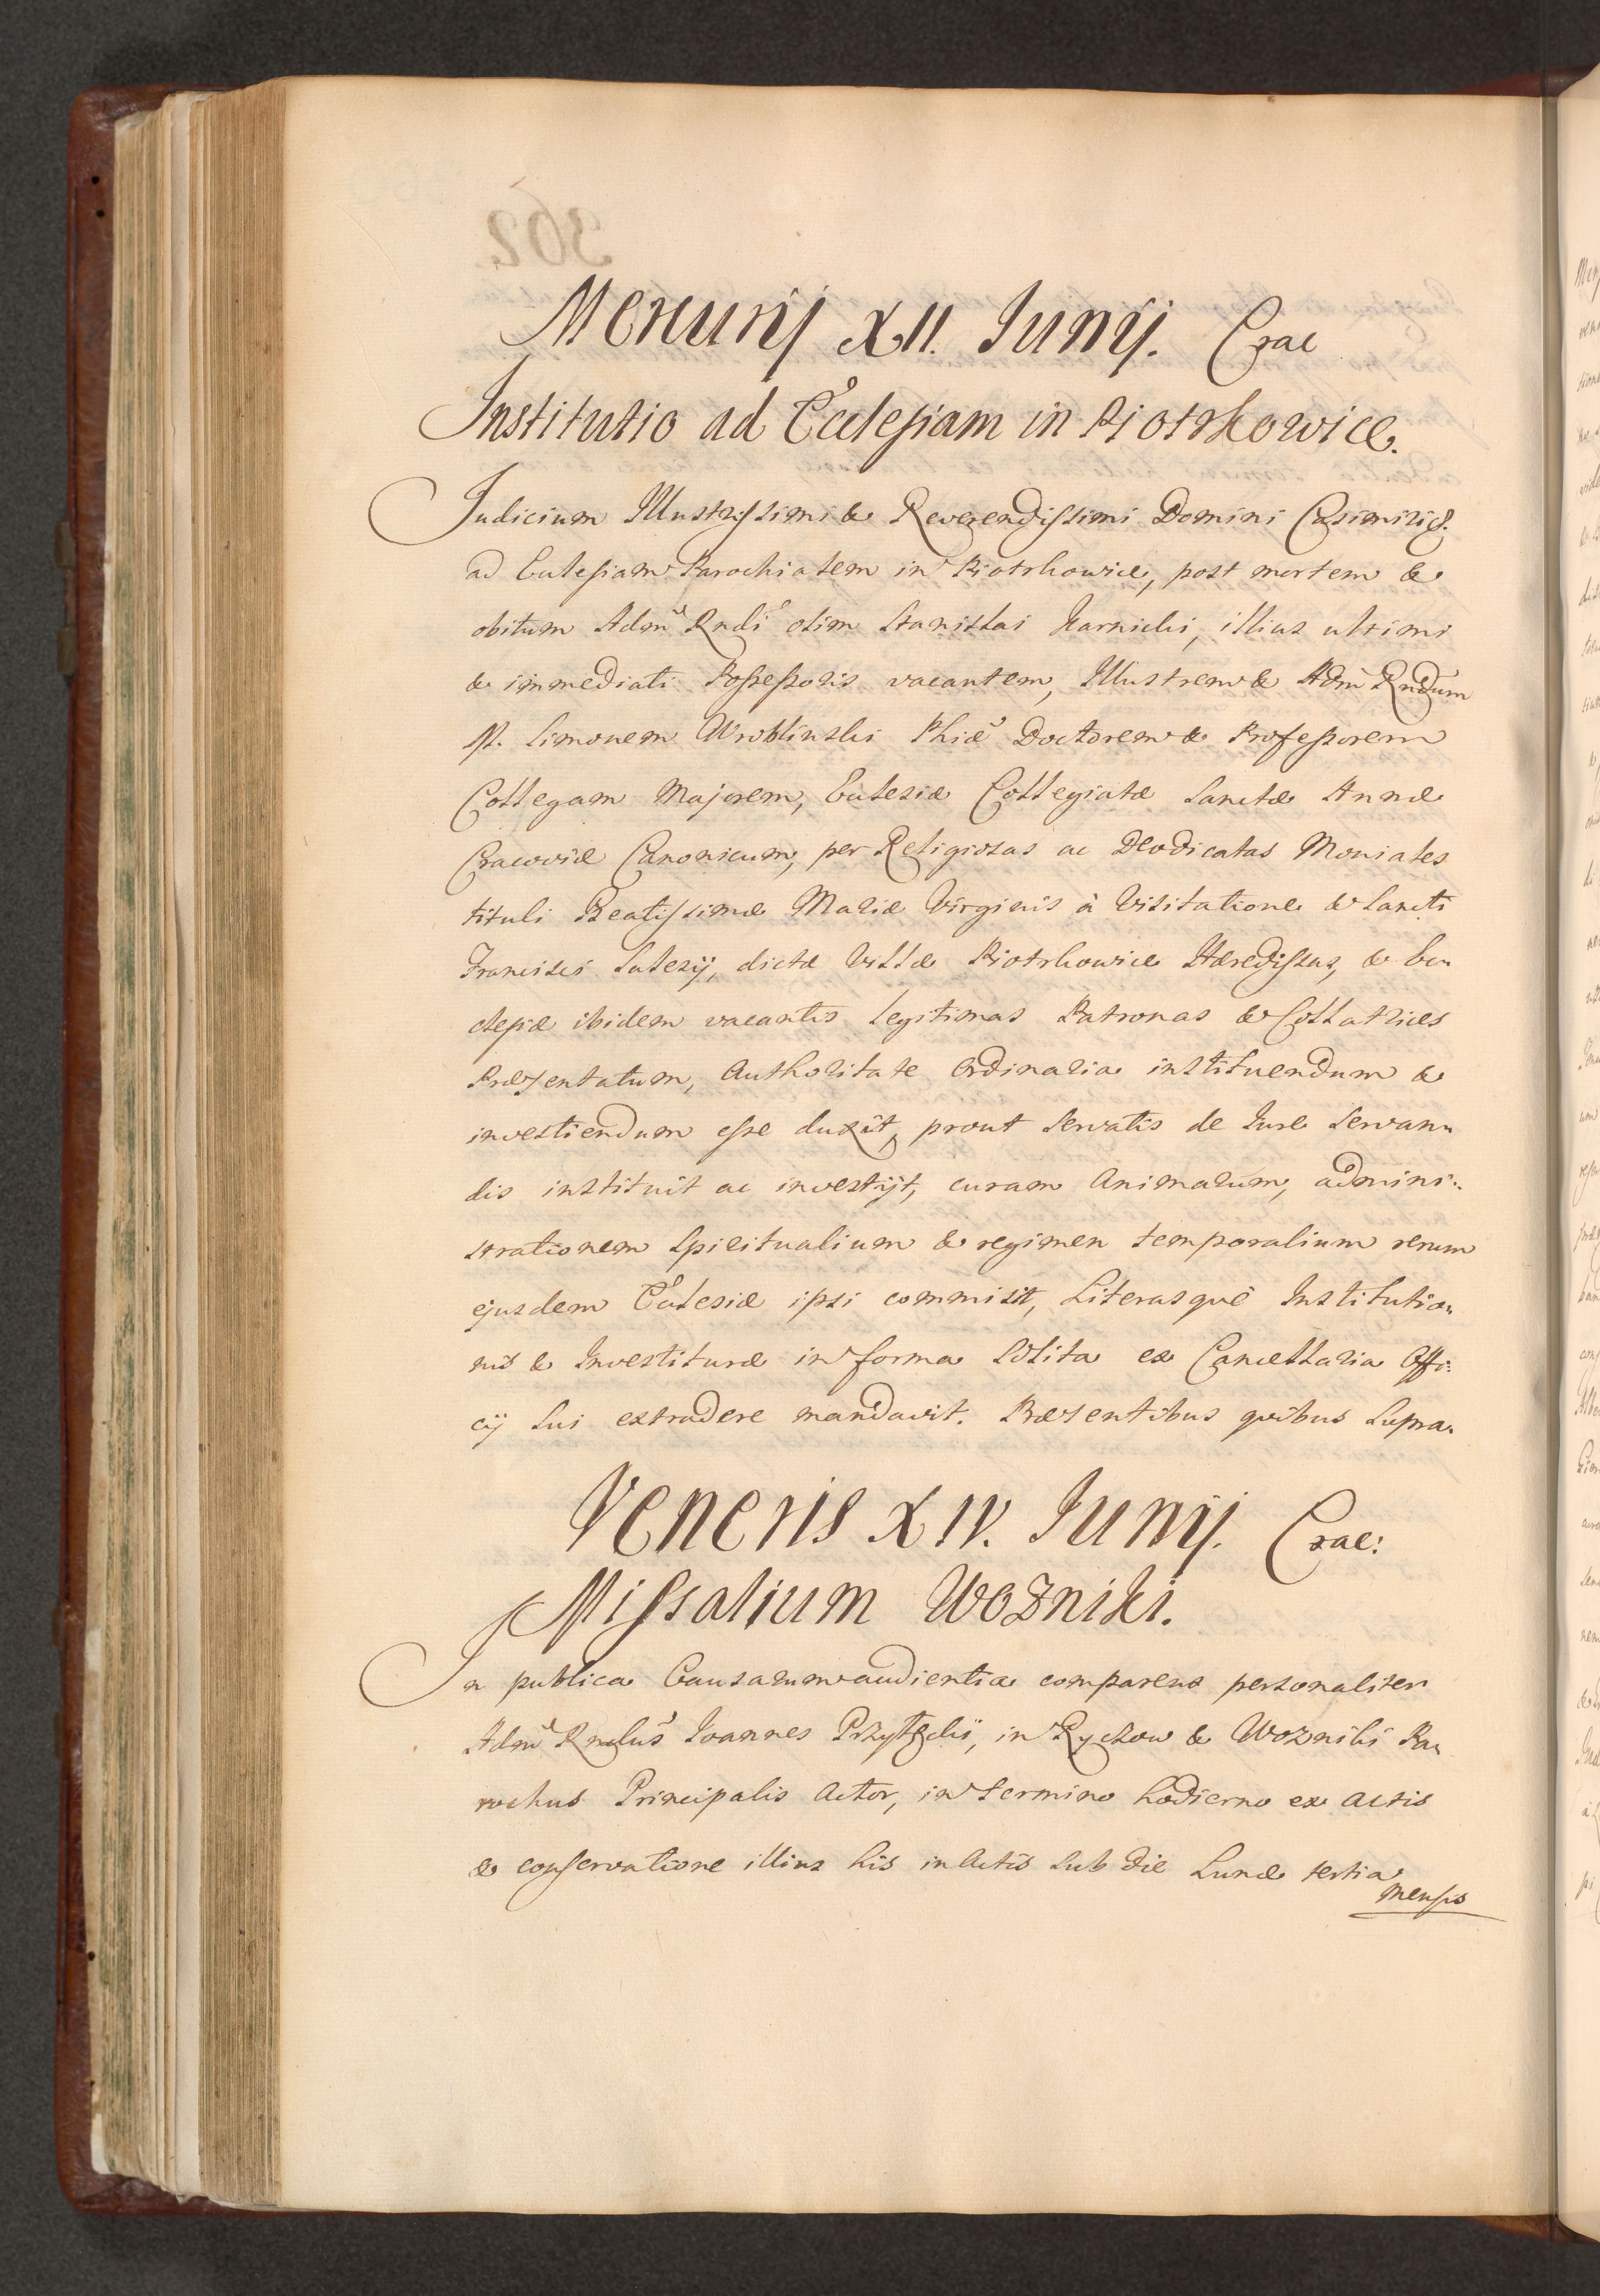 Mercurij XII. Junij. Crac
Institutio ad Ecclesiam in Piotrkowice.
Judicium Illustrissimi & Reverendissimi Domini Casimiri &.
ad Ecclesiam Parochialem in Piotrkowice, post mortem &
obitum Adm Rndi olim Stanislai Karnicki, illius ultimi
& immediati Possessoris vacantem, Illustrem & Adm Rndum
M. Simonem Wroblinski Phiæ Doctorem & Professorem
Collegam Majorem, Ecclesiæ Collegiatæ Sanctæ Annæ
Cracoviæ Canonicum, per Religiosas ac Deodicatas Moniales
tituli Beatissimæ Mariæ Virginis à Visitatione & Sancti
Francisci Salezij, dictæ Villæ Piotrkowice Hæredissas, & Ecc
clesiæ ibidem vacantis legitimas Patronas & Collatrices
Præsentatum, Authoritate Ordinaria instituendum &
investiendum esse duxit, prout servatis de Jure servan
dis instituit ac investijt, curam Animarum, admini:
strationem Spiritualium & regimen temporalium rerum
ejusdem Ecclesiæ ipsi commisit, Literasquè Institutio
nis & Investituræ in forma solita ex Cancellaria Offi:
cij sui extradere mandavit. Præsentibus quibus supra.
Veneris XIV. Junij. Crac:
Missalium Wozniki.
In publica Causarum audientia comparens personaliter
Adm Rndus Joannes, in Ryczow & Wozniki Pa
rochus Principalis Actor, in termino hodierno ex Actis
& conservatione illius his in Actis sub die Lunæ tertia
mensis